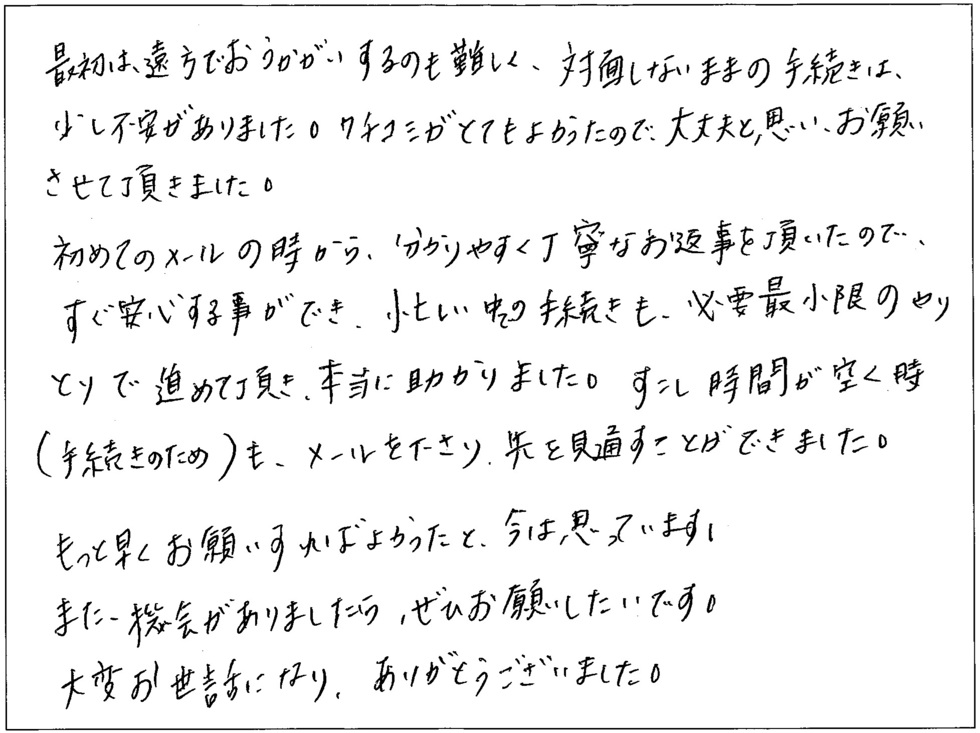 最初は、遠方でおうかがいするのも難しく、対面しないままの手続きは、
少し不安がありました。クチコミがとてもよかったので、大丈夫と思い、お願い
させて頂きました。
初めてのメールの時から、分かりやすく丁寧なお返事を頂いたので、
すぐ安心する事ができ、忙しい中の手続きも、必要最小限のやり
とりで進めて頂き、本当に助かりました。すこし時間が空く時
(手続きのため)も、メールを下さり、先を見通すことができました。
もっと早くお願いすればよかったと、今は思っています。
また、機会がありましたら、ぜひお願いしたいです。
大変お世話になり、ありがとうございました。